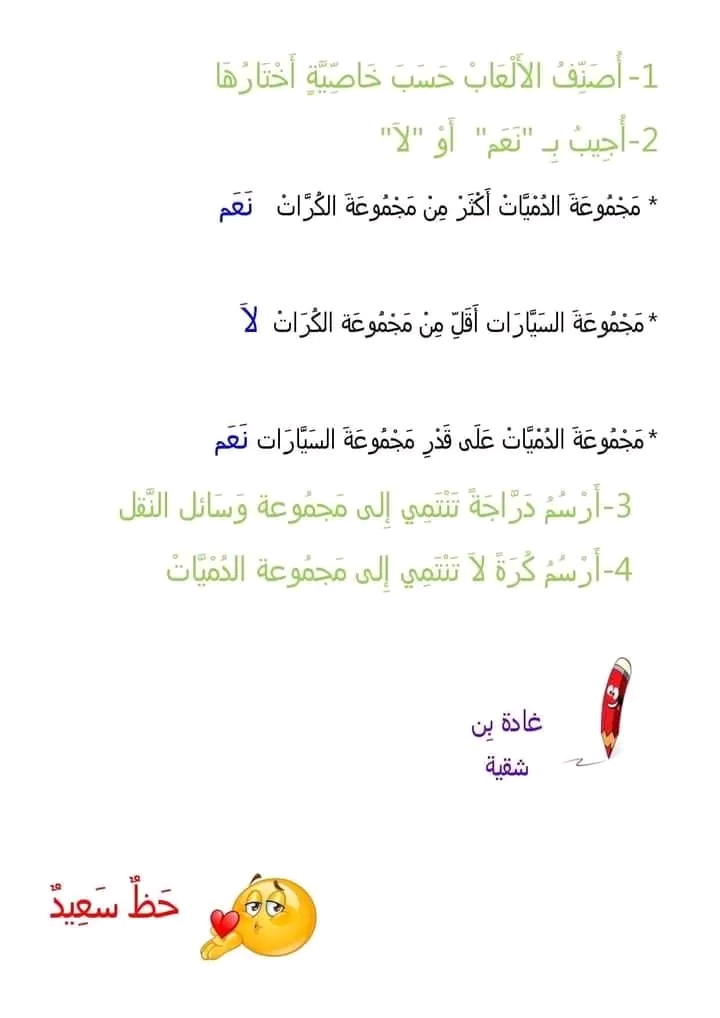 1- أُصَنِّفُ الأَلْعَابْ حَسَبَ خَاصِّيَّةٍ أَخْتَارُهَا
2-أُجِيبُ بِـ "نَعَم" أَوْ "لاَ"
* مَجْمُوعَةَ الدُمْيَّاتْ أَكْثَرْ مِنْ مَجْمُوعَةَ الكُرَّاتْ نَعَم
* مَجْمُوعَةَ السَيَّارَات أَقَلِّ مِنْ مَجْمُوعَة الكُرَاتْ لاَ
* مَجْمُوعَةَ الدُمْيَّاتْ عَلَى قَدْرِ مَجْمُوعَةَ السَيَّارَات نَعَم
3-أَرْسُمُ دَرَّاجَةً تَنْتَمِي إِلى مَجمُوعة وَسَائل النَّقل
4-أَرْسُمُ كُرَةً لاَ تَنْتَمِي إِلى مَجمُوعة الدُمْيَّاتْ
غادة بِن
شقية
حَظٌ سَعِيدٌ